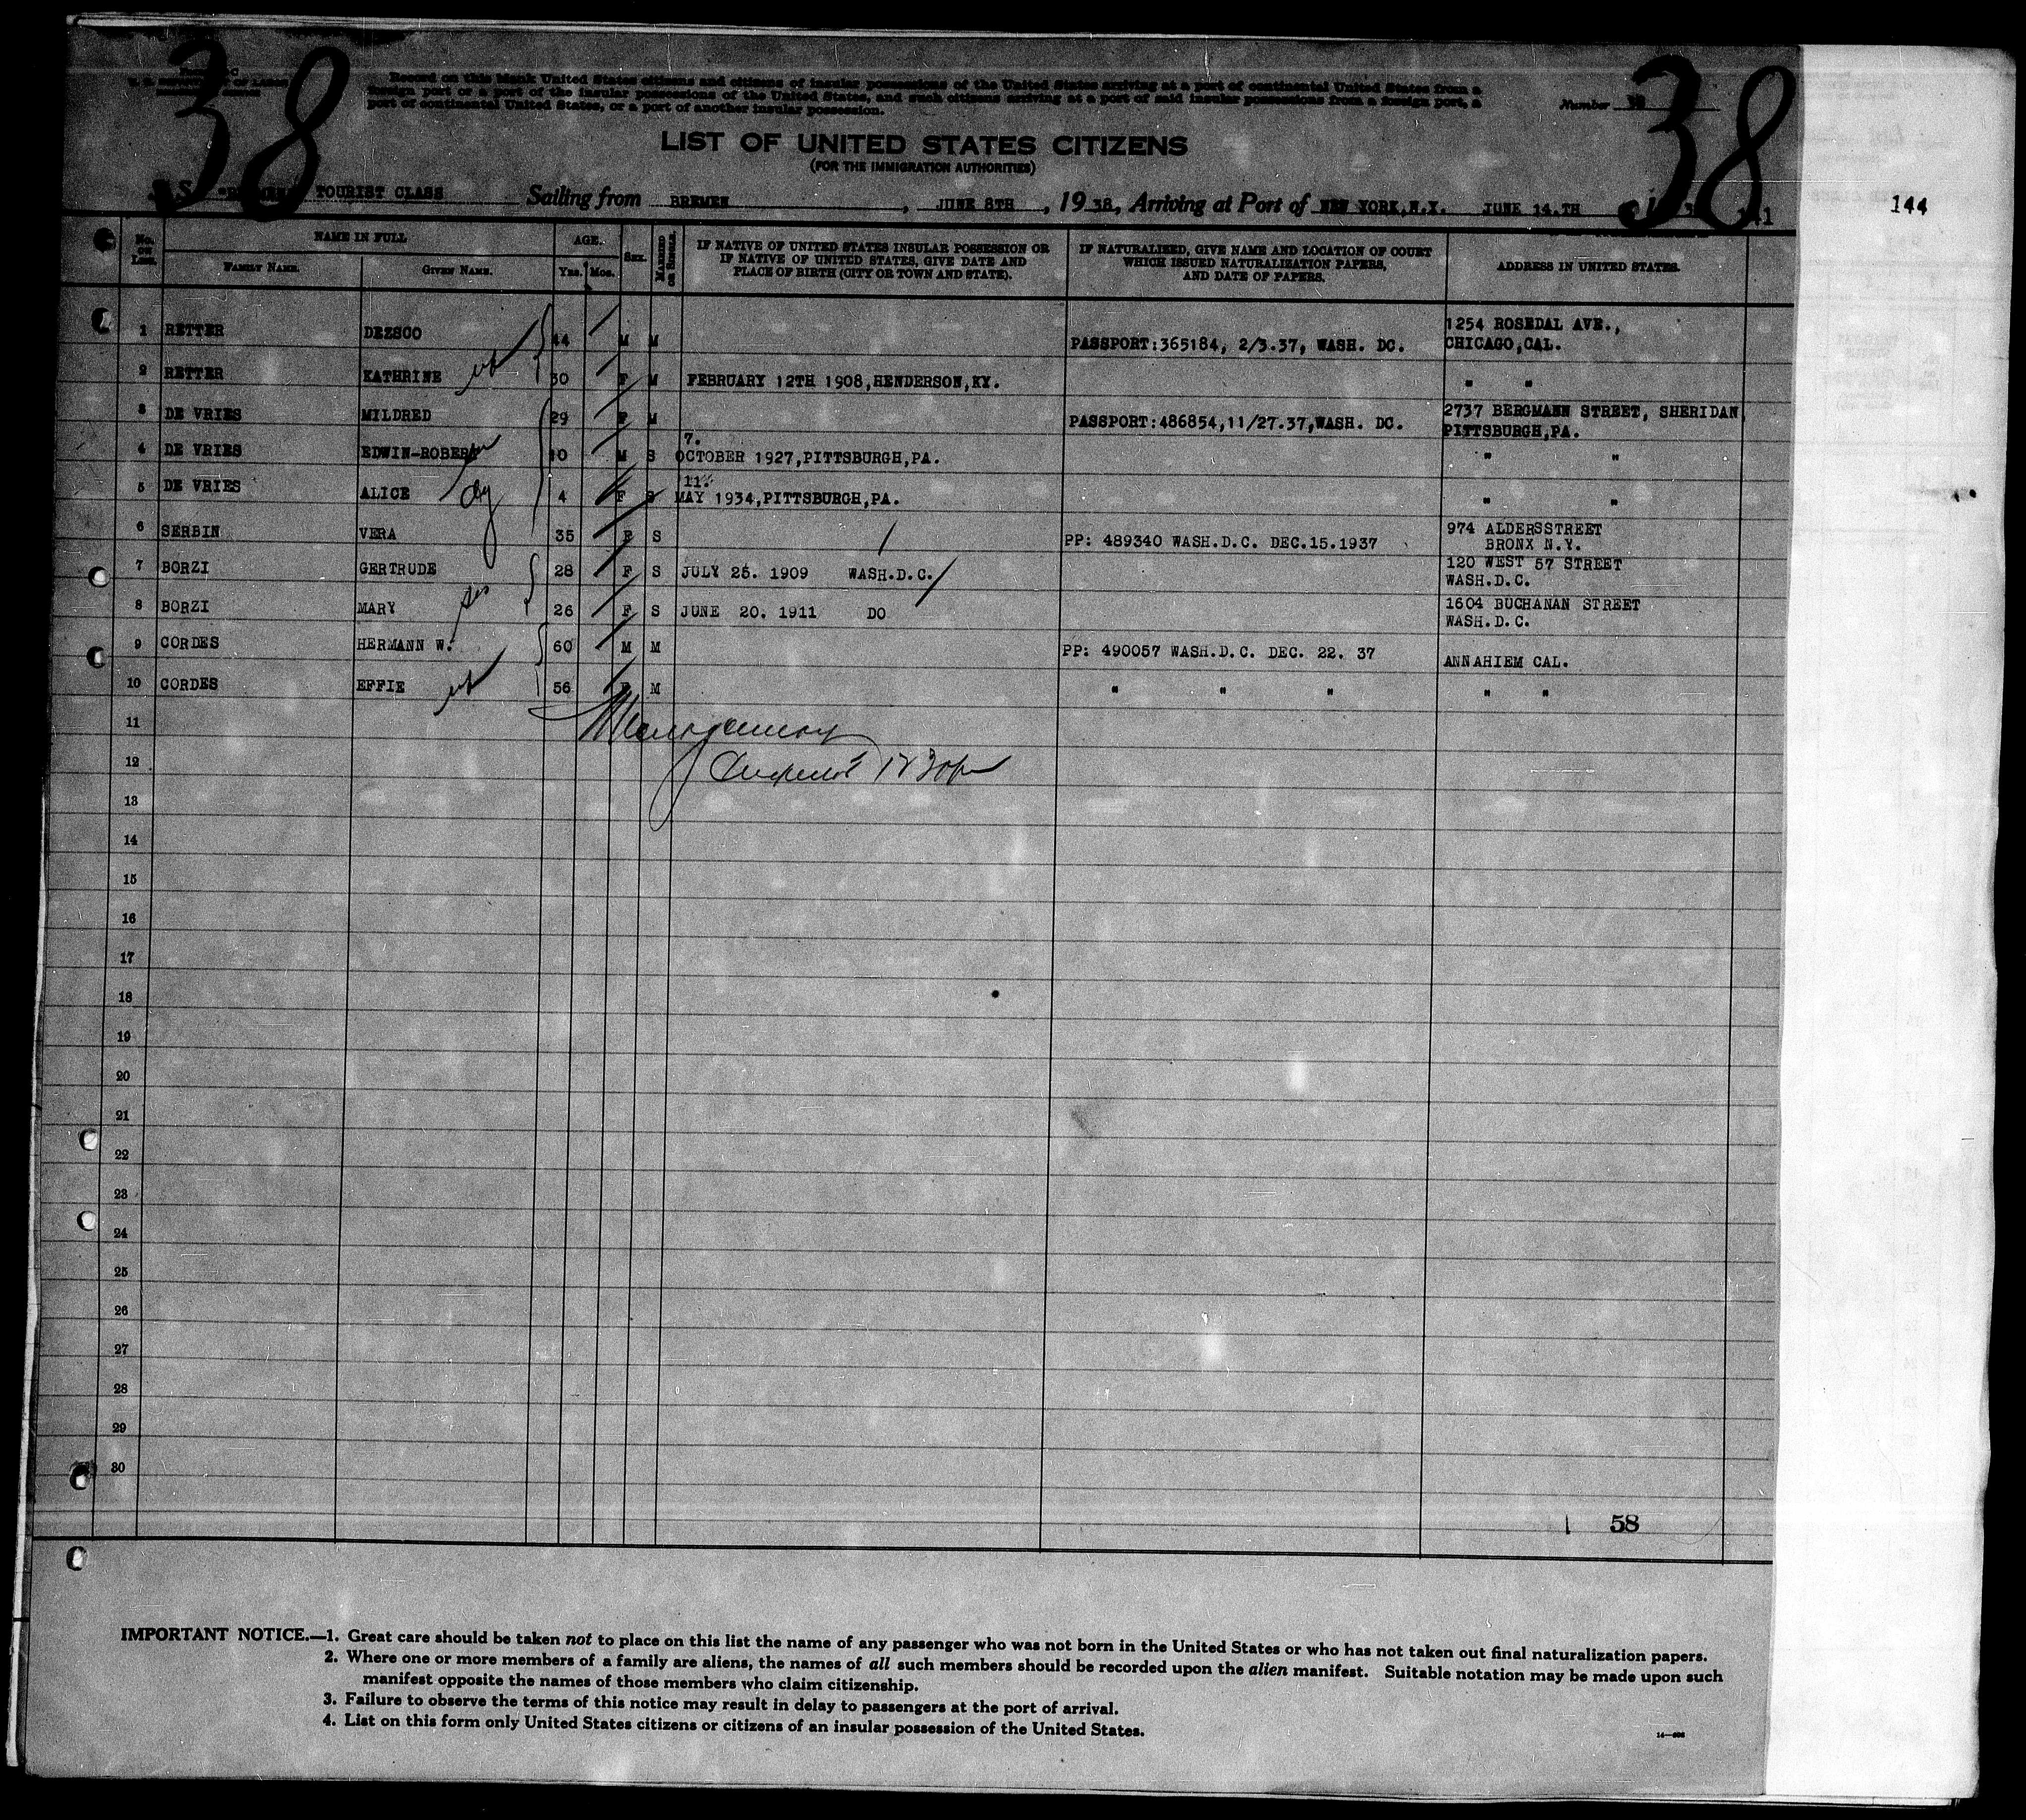 38
38
U. S. DEPARTMENT OF LABOR
Record on this blank United States citizens and citizens of insular possessions of the United States arriving at a port of continental United States from a
foreign port or a port of the insular possessions of the United States, and such citizens arriving at a port of said insular possessions from a foreign port, a
port of continental United States, or a port of another insular possession.
Number 38
LIST OF UNITED STATES CITIZENS
(FOR THE IMMIGRATION AUTHORITIES)
S. S. "BREMEN" TOURIST CLASS Sailing from BREMEN, JUNE 8TH, 1938, Arriving at Port of NEW YORK, N.Y. JUNE 14.TH
144
No. on List. NAME IN FULL AGE. SEX. MARRIED OR SINGLE. IF NATIVE OF UNITED STATES INSULAR POSSESSION OR IF NATIVE OF UNITED STATES, GIVE DATE AND PLACE OF BIRTH (CITY OR TOWN AND STATE). IF NATURALIZED, GIVE NAME AND LOCATION OF COURT WHICH ISSUED NATURALIZATION PAPERS, AND DATE OF PAPERS. ADDRESS IN UNITED STATES.
FAMILY NAME. GIVEN NAME. Yrs. Mos.
1 RETTER DEZSCO 44 M M PASSPORT:365184, 2/3.37, WASH. DC. 1254 ROSEDAL AVE., CHICAGO,CAL.
2 RETTER KATHRINE 30 F M FEBRUARY 12TH 1908,HENDERSON,KY. " "
wf
3 DE VRIES MILDRED 29 F M PASSPORT:486854,11/27.37,WASH. DC. 2737 BERGMANN STREET, SHERIDAN PITTSBURGH,PA.
4 DE VRIES EDWIN-ROBERT 10 M S 7. OCTOBER 1927,PITTSBURGH,PA. " "
5 DE VRIES ALICE 4 F S 11. MAY 1934,PITTSBURGH,PA. " "
6 SERBIN VERA 35 F S PP: 489340 WASH.D.C. DEC.15.1937 974 ALDERSSTREET BRONX N.Y.
7 BORZI GERTRUDE 28 F S JULY 25. 1909 WASH.D.C. 120 WEST 57 STREET WASH.D.C.
8 BORZI MARY 26 F S JUNE 20. 1911 DO 1604 BUCHANAN STREET WASH.D.C.
9 CORDES HERMANN W. 60 M M PP: 490057 WASH.D.C. DEC. 22. 37 ANNAHIEM CAL.
10 CORDES EFFIE 56 F M " " " " "
wf
11 Montgomery
12 1230pm
13
14
15
16
17
18
19
20
21
22
23
24
25
26
27
28
29
30
58
IMPORTANT NOTICE.—1. Great care should be taken not to place on this list the name of any passenger who was not born in the United States or who has not taken out final naturalization papers.
2. Where one or more members of a family are aliens, the names of all such members should be recorded upon the alien manifest. Suitable notation may be made upon such
manifest opposite the names of those members who claim citizenship.
3. Failure to observe the terms of this notice may result in delay to passengers at the port of arrival.
4. List on this form only United States citizens or citizens of an insular possession of the United States.